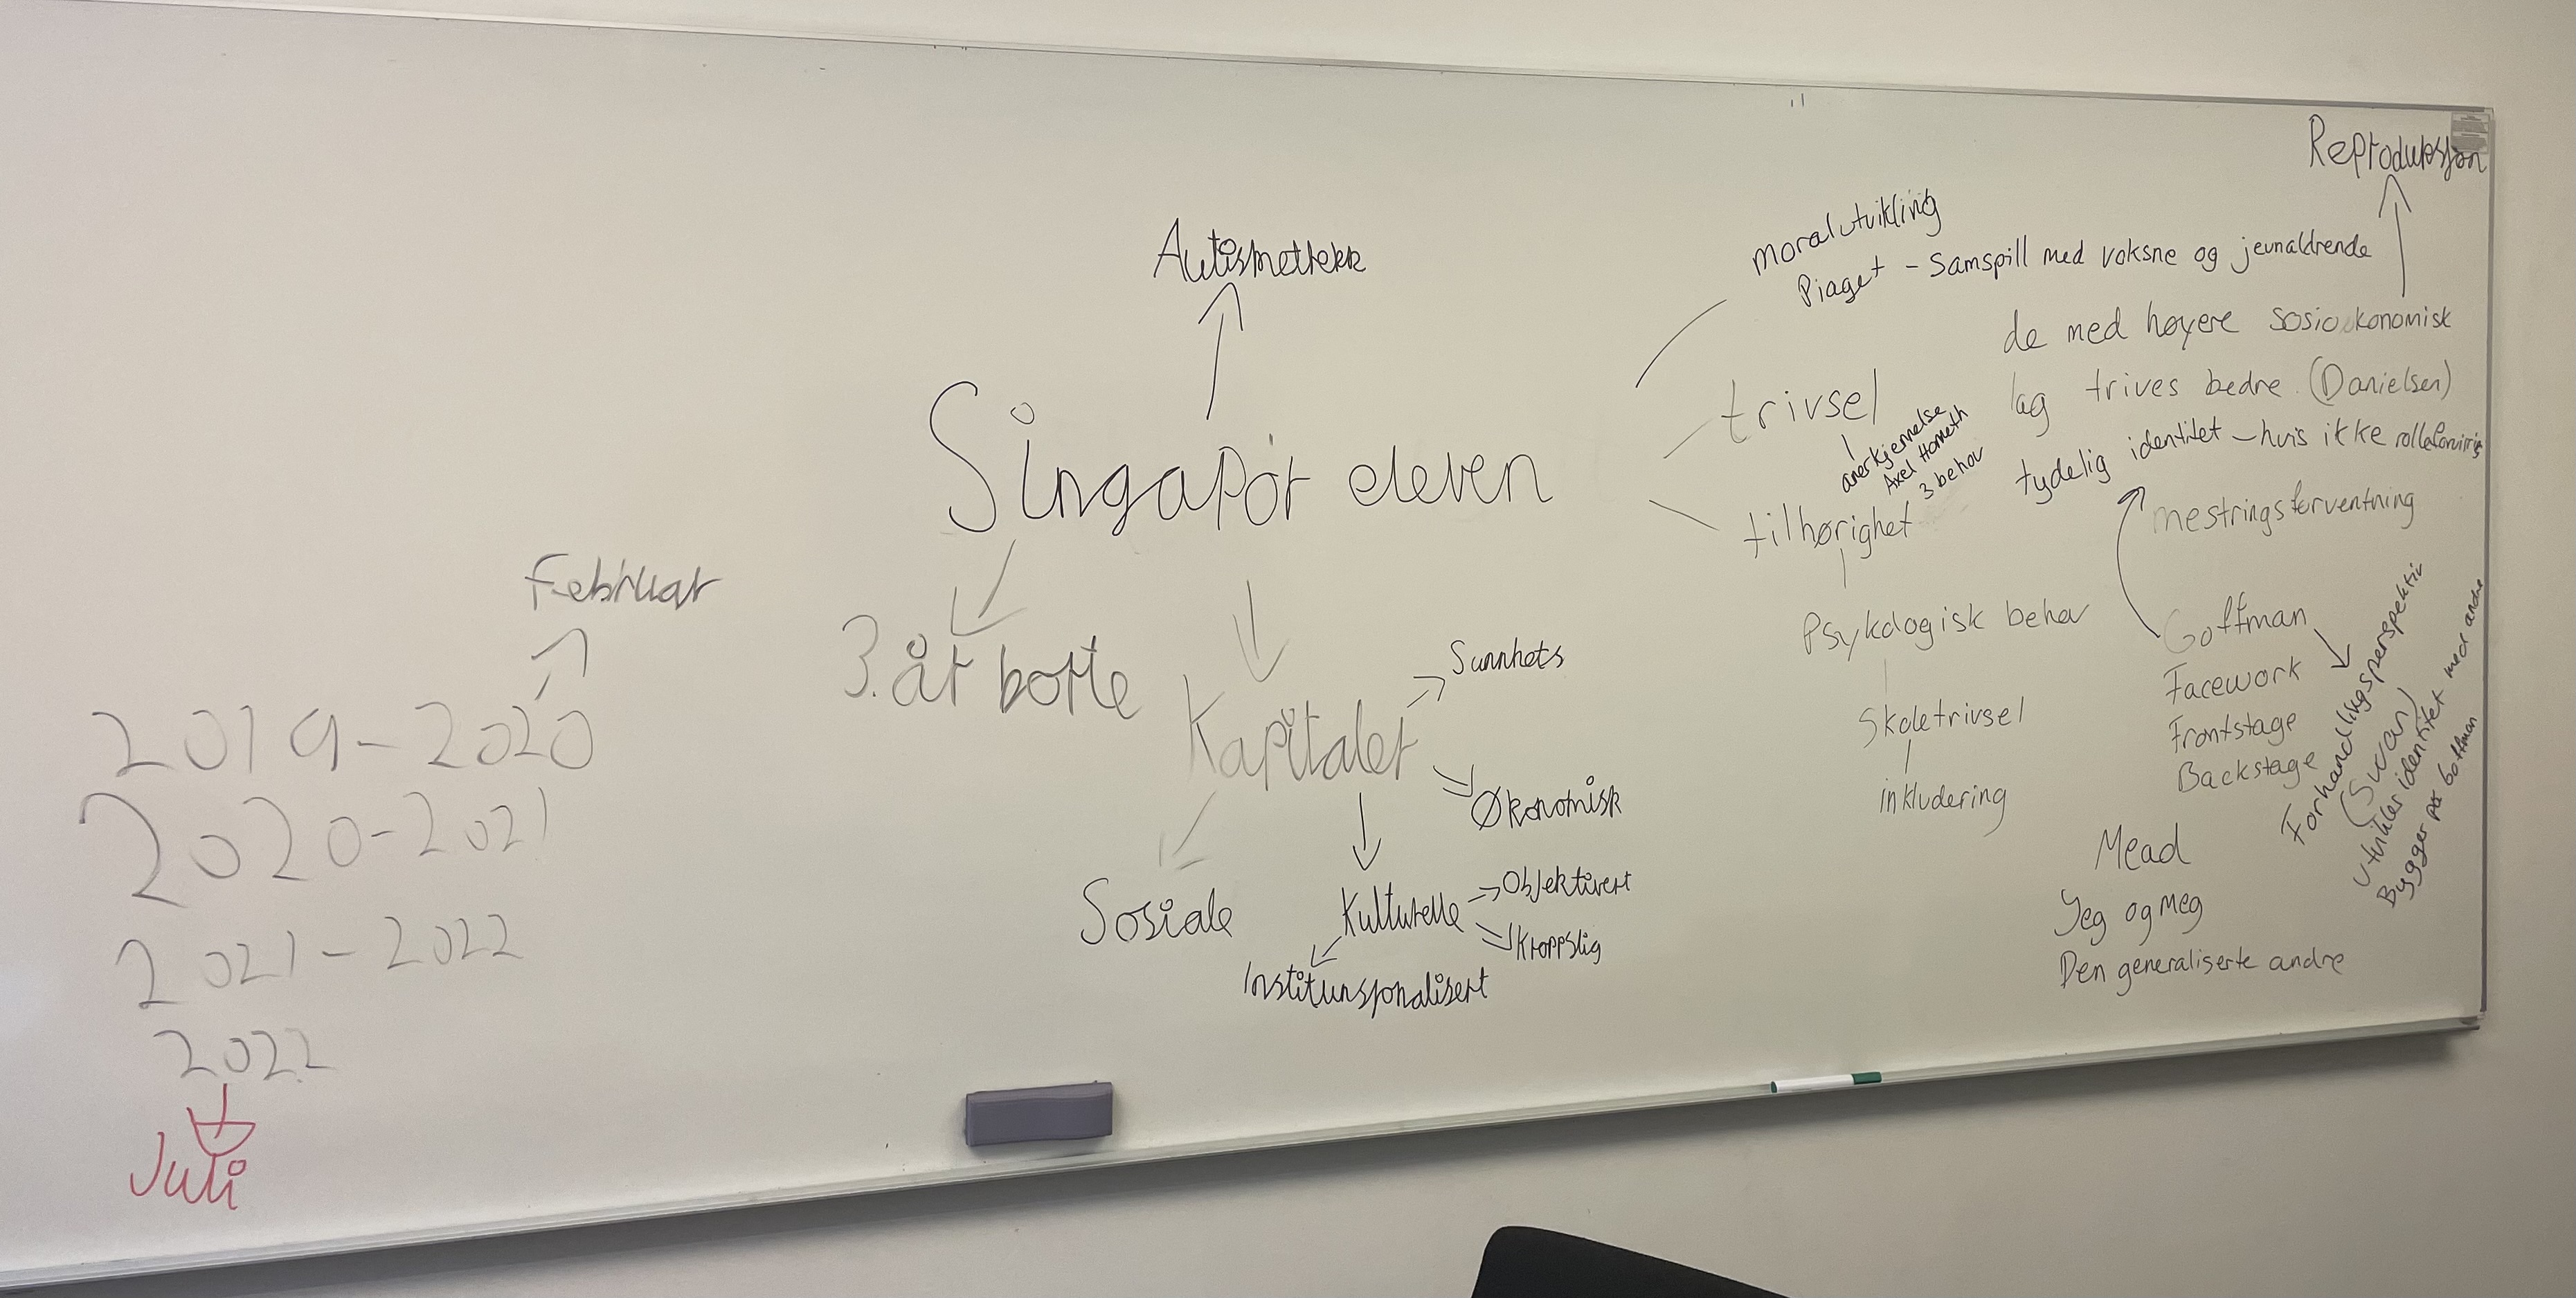 Reproduksjon
moralutvikling
Piaget - Samspill med voksne og jevnaldrende
Autismetrekk
de med høyere sosioøkonomisk
lag trives bedre (Danielsen)
trivsel
anerkjennelse
Axel Honneth
3 behov
tydelig identitet - hvis ikke
Singapor eleven
tilhørighet
mestringsforventning
Februar
3. år borte
Psykologisk behov
Goffman
Facework
Frontstage
Backstage
Forhandlingsperspektiv
(Swan)
utvikler identitet med andre
Bygger på Goffman
Sunnhets
Kapitaler
Økonomisk
Skoletrivsel
inkludering
2019-2020
2020-2021
2021-2022
2022
Juli
Sosiale
Kulturelle
Objektivert
Kroppslig
Institunsjonalisert
Mead
Jeg og meg
Den generaliserte andre